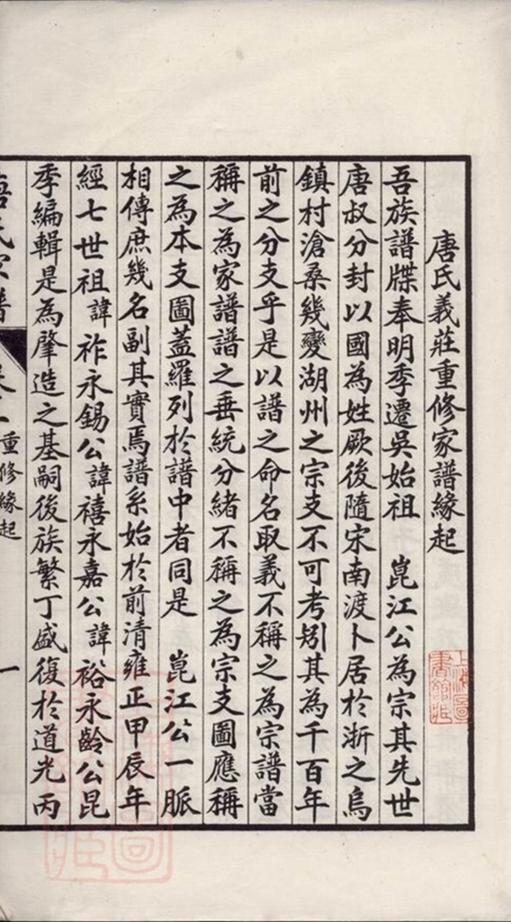 唐氏義莊重修家譜緣起
吾族譜牒奉明季遷吳始祖 崑江公為宗其先世
唐叔分封以國為姓厥後隨宋南渡卜居於浙之烏
鎮村滄桑幾變湖州之宗支不可考矧其為千百年
前之分支乎是以譜之命名取義不稱之為宗譜當
稱之為家譜譜之垂統分緒不稱之為宗支圖應稱
之為本支圖蓋羅列於譜中者同是 崑江公一脈
相傳庶幾名副其實焉譜系始於前清雍正甲辰年
經七世祖諱祚永錫公諱禧永嘉公諱裕永齡公昆
季編輯是為肇造之基嗣後族繁丁盛復於道光丙
重修緣起
一
上海圖書館藏